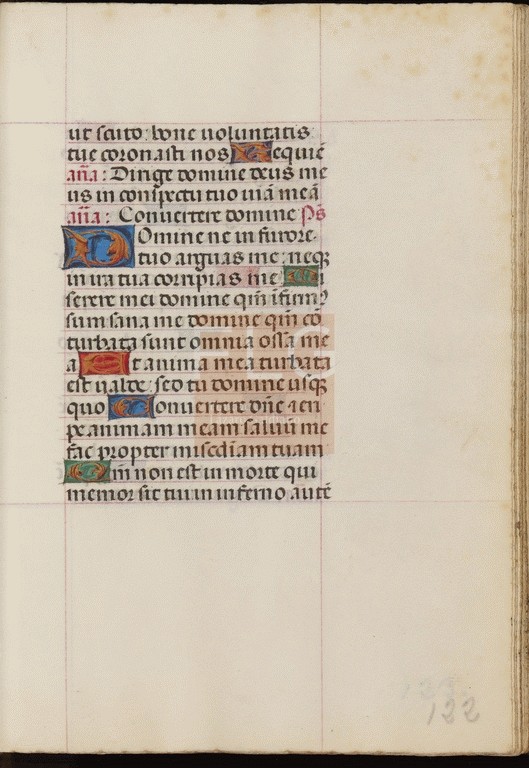 ut scuto: bone uoluntatis
tue coronasti nos Requiē
añа: Dirige domine deus me
us in conspectu tuo uiā meā
aña: Conuertere domine Ps
Domine ne in furore
tuo arguas me: neq
in ira tua corripias me Mi
serere mei domine qm̄ ifirm9
sum sana me domine qm̄ cō
turbata sunt omnia ossa me
a Et anima mea turbata
est ualde: sed tu domine usq
quo Conuertere dn̄e ⁊ eri
pe animam meam saluū me
fac propter misediam tuam
Qm̄ non est in morte qui
memor sit tui: in inferno autē
122